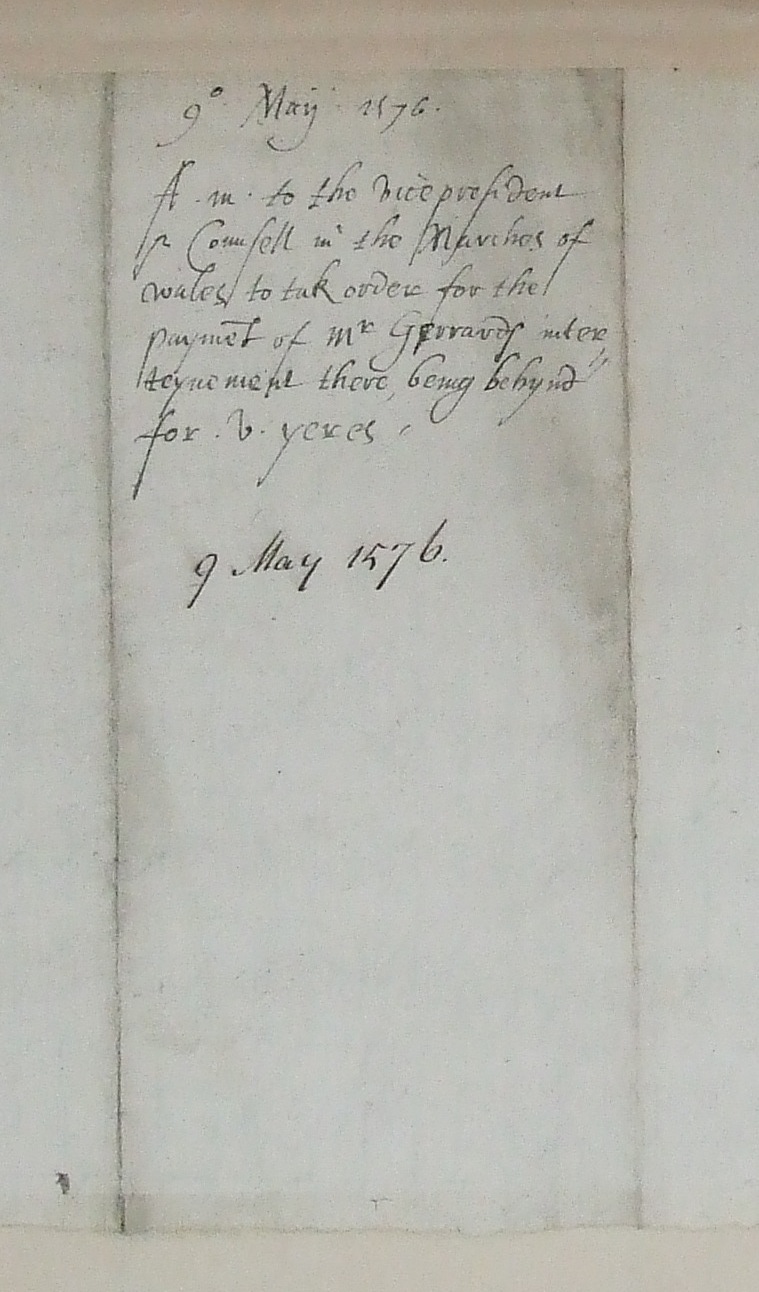 9° May 1576.
A . m . to the vicepresident
& Counsell in the Marches of
wales to tak order for the
paymēt of Mr Gerrards inter
teynement there, being behynd
for .v. yeres
9 May 1576.